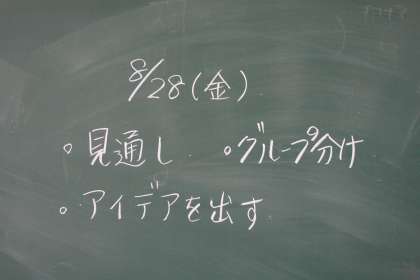 8/28(金)
。見通し 。グループ分け
。アイデアを出す